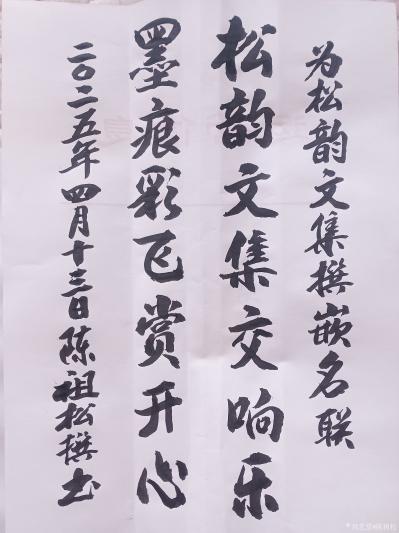 为松韵文集撰嵌名联
松韵文集交响乐
墨痕彩飞赏开心
二〇二五年四月十三日陈祖松撰书